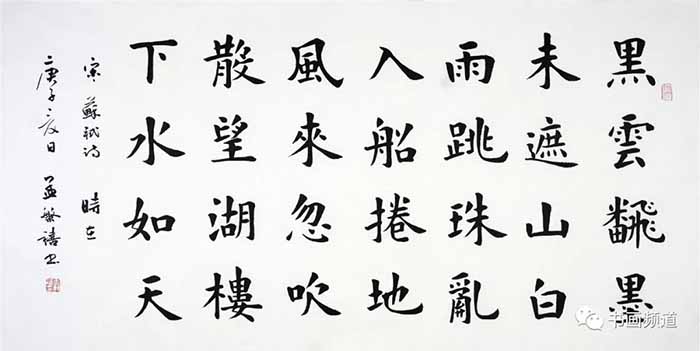 黑雲飜墨
未遮山白
雨跳珠亂
入船捲地
風來忽吹
散望湖樓
下水如天
宋蘇軾詩 時在
庚子夏日 孟繁禧书
书画频道